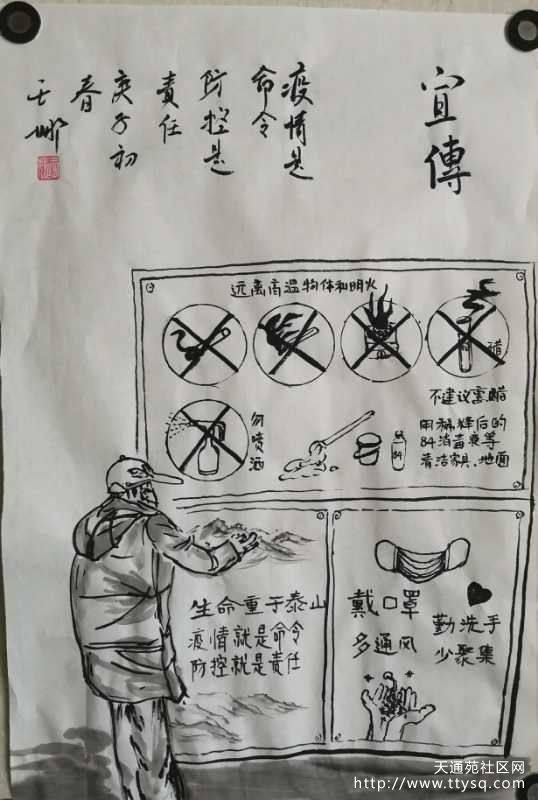 宣傳
疫情是
命令
防控是
责任
庚子初
春
远离高温物体和明火
醋
不建议熏醋
勿喷洒
84
用稀释后的
84消毒液等
清洁家具、地面
生命重于泰山
疫情就是命令
防控就是责任
戴口罩
多通风
勤洗手
少聚集
天通苑社区网
http://www.ttysq.com